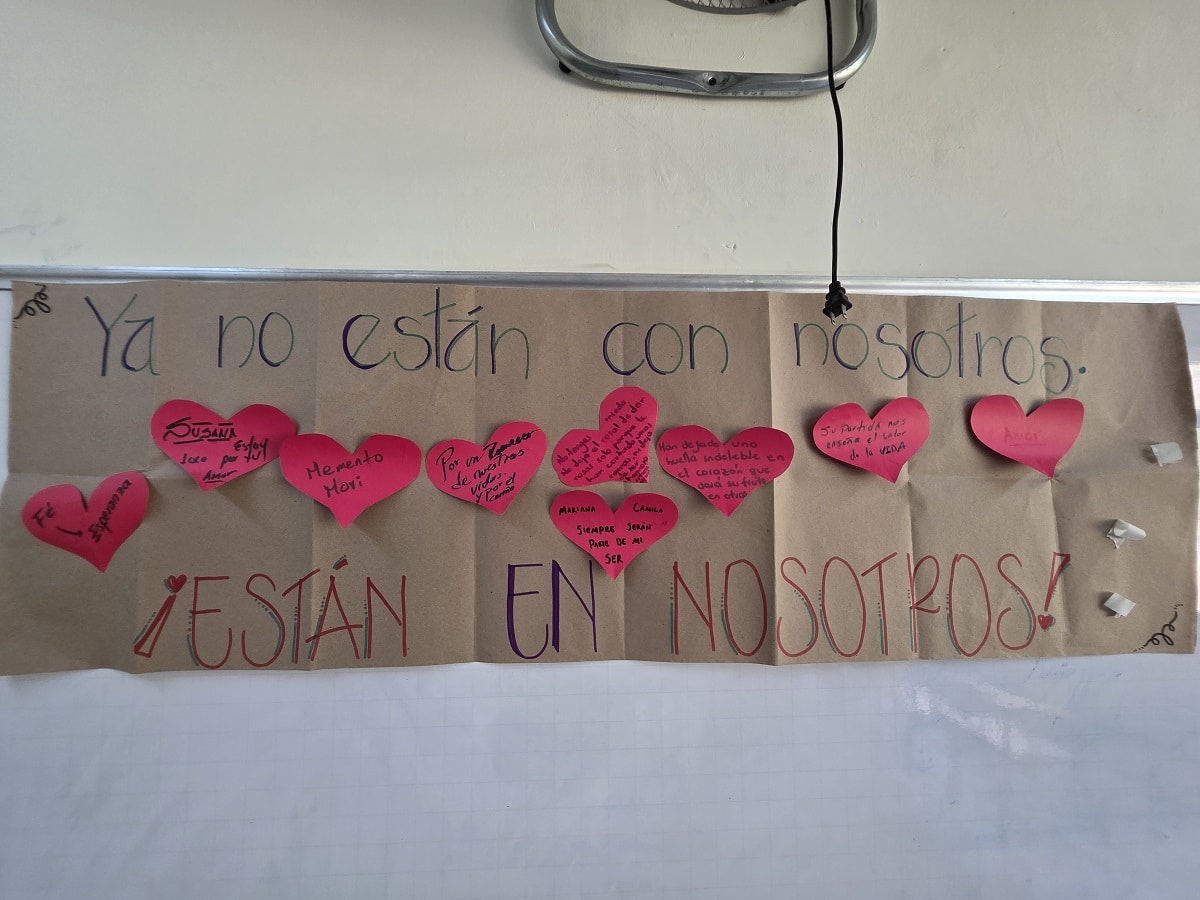 Ya no están con nosotros.
SUSAÑA
Estoy
loco por tu
Amor
Fé
y
Esperanza
Memento
Mori
Por un
de nuestras
vidas
y por el
No tengas miedo,
No dejo el
han
MARIANA CAMILA
SIEMPRE SERÁN
PARTE DE MI
SER
Han dejado una
huella indeleble en
el corazón que
dará su fruto
en otros
Su Partida nos
enseña el valor
de la VIDA
Amor
¡ESTÁN EN NOSOTROS!